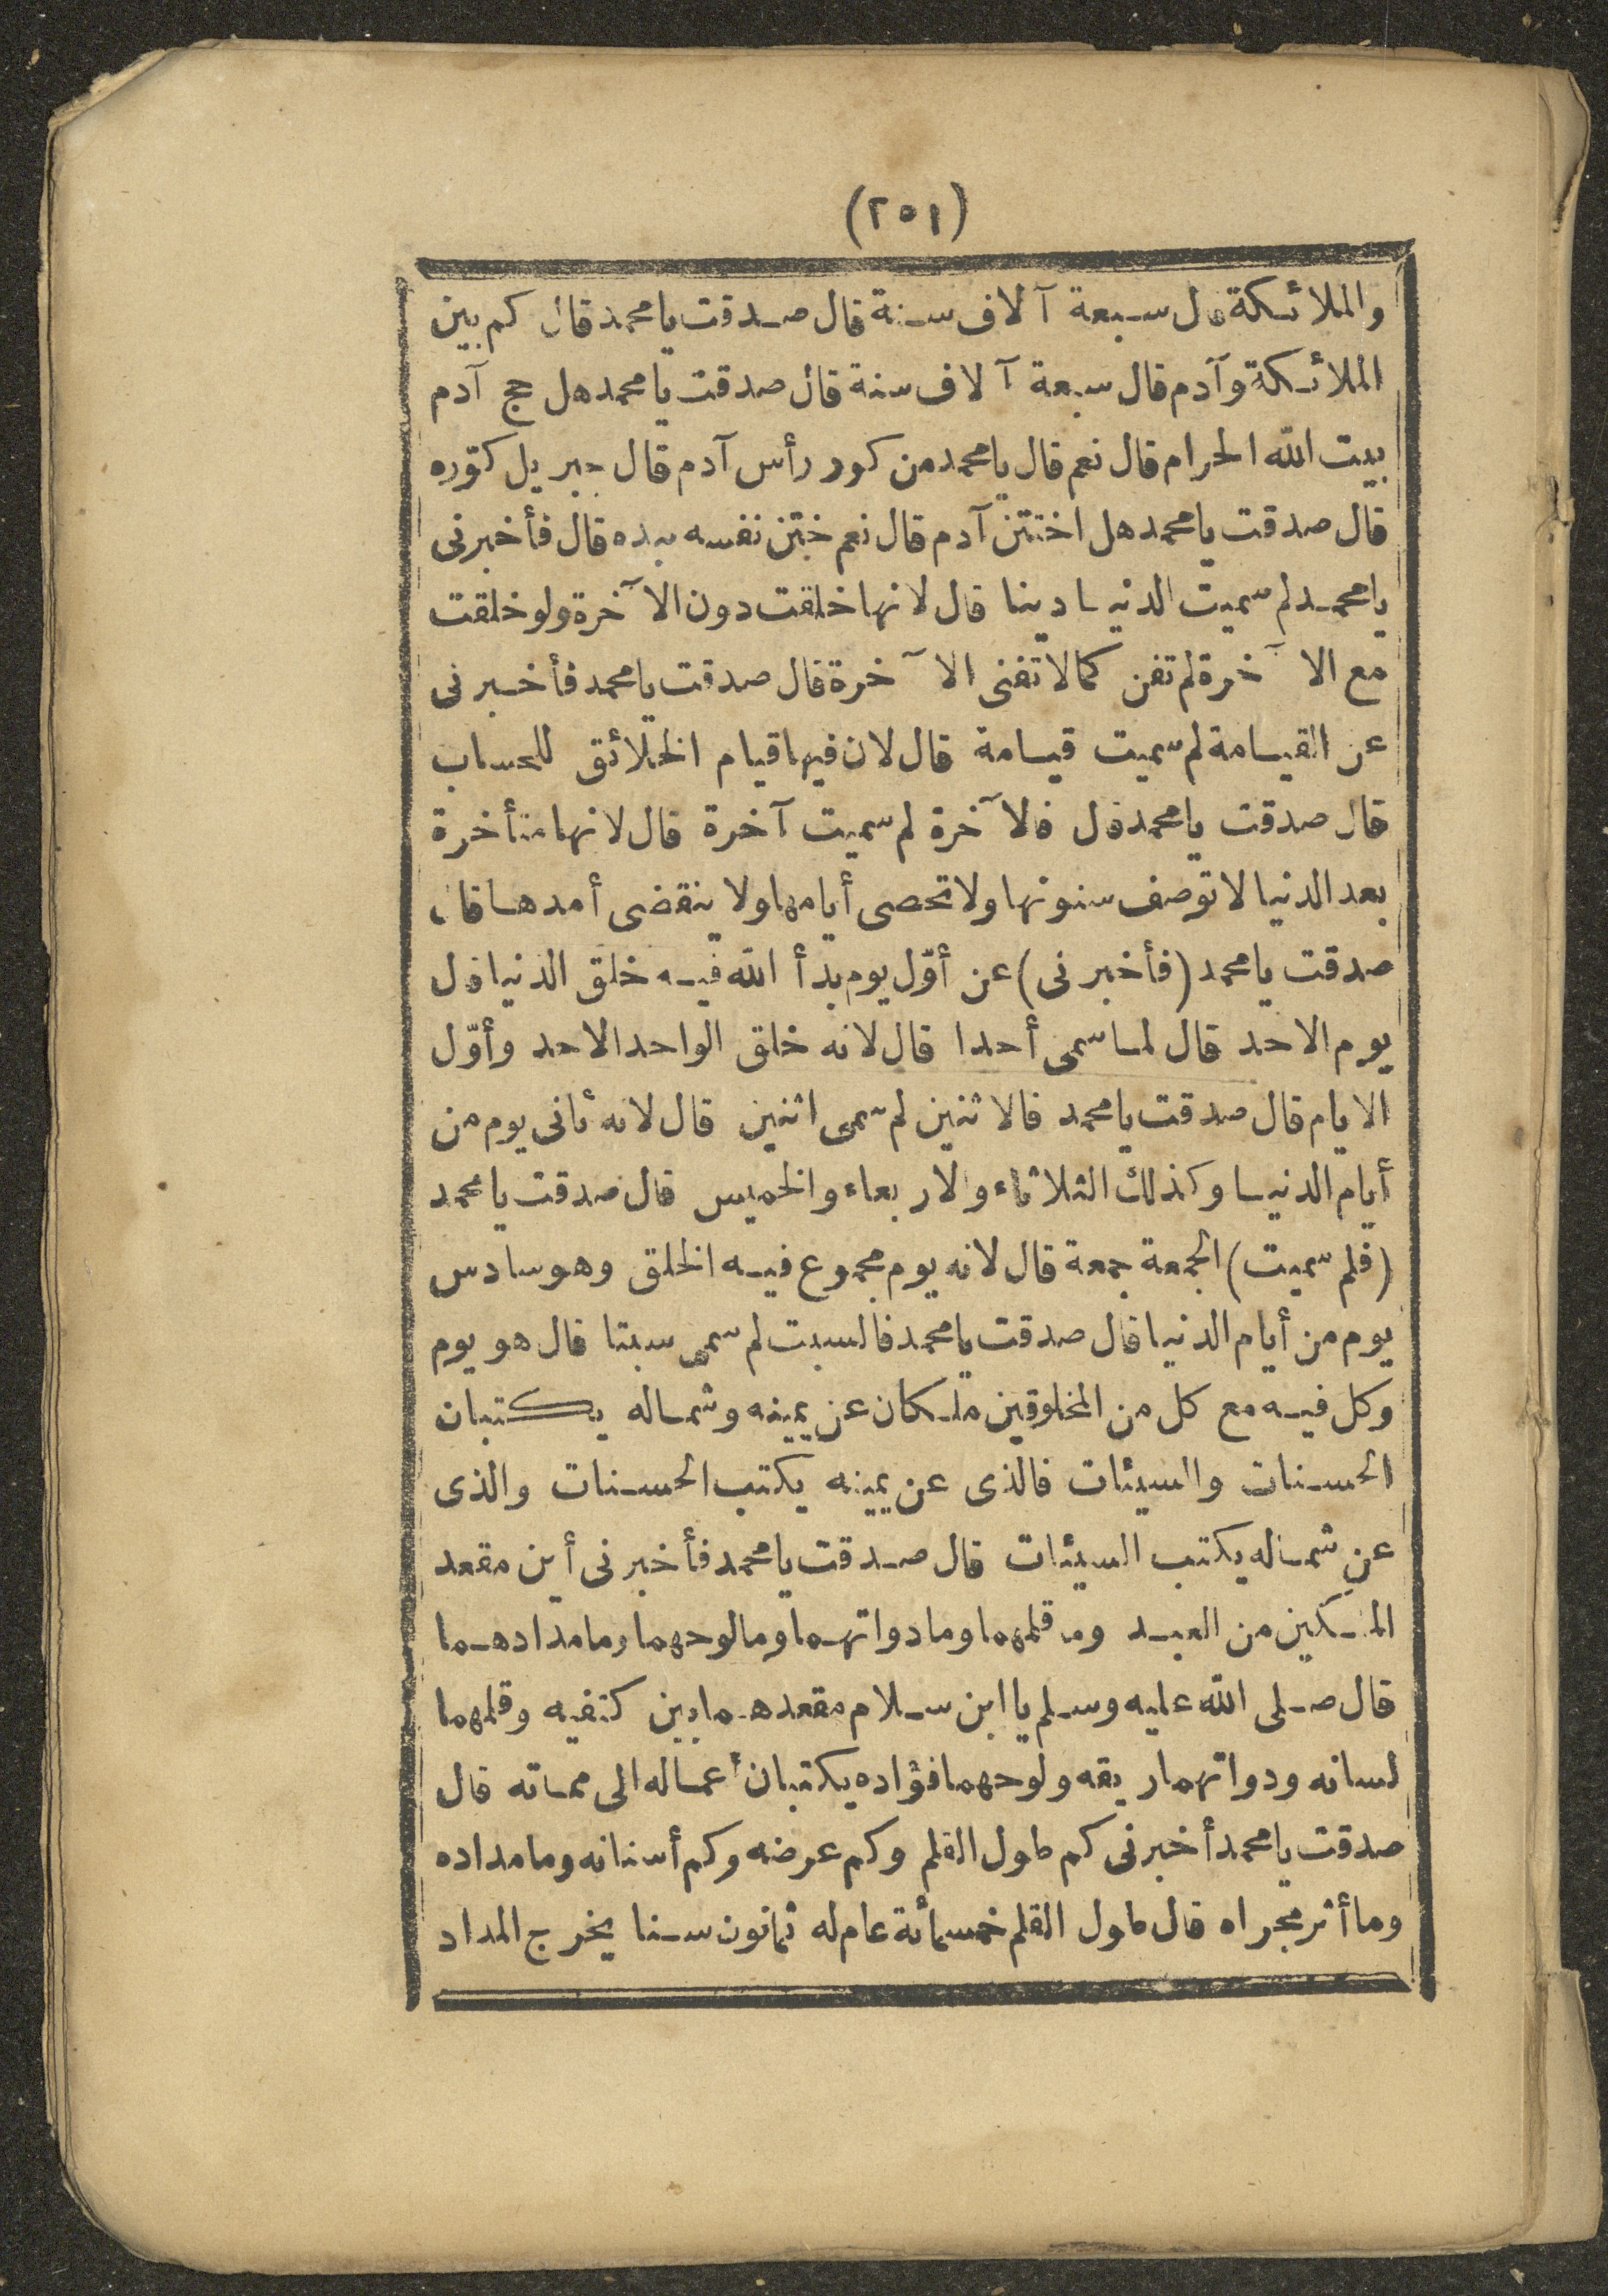 (٢٥١)
والملائكة قال سبعة آلاف سنة قال صدقت يا محمد قال كم بين
الملائكة وآدم قال سبعة آلاف سنة قال صدقت يا محمد هل حج آدم
بيت الله الحرام قال نعم قال يا محمد من كور رأس آدم قال جبريل كوّره
قال صدقت يا محمد هل اختتن آدم قال نعم ختن نفسه بيده قال فأخبرنى
يا محمد لم سميت الدنيا دينا قال لانها خلقت دون الآخرة ولو خلقت
مع الآخرة لم تفن كما لا تفنى الآخرة قال صدقت يا محمد فأخبرنى
عن القيامة لم سميت قيامة قال لان فيها قيام الخلائق للحساب
قال صدقت يا محمد قال فالآخرة لم سميت آخرة قال لانها متأخرة
بعد الدنيا لا توصف سنونها ولا تحصى أيامها ولا ينقضى أمدها قال
صدقت يا محمد (فأخبرنى) عن أوّل يوم بدأ الله فيه خلق الدنيا قال
يوم الاحد قال لما سمى أحدا قال لانه خلق الواحد الاحد وأوّل
الايام قال صدقت يا محمد فالاثنين لم سمى اثنين قال لانه ثانى يوم من
أيام الدنيا وكذلك الثلاثاء والاربعاء والخميس قال صدقت يا محمد
(فلم سميت) الجمعة جمعة قال لانه يوم مجموع فيه الخلق وهو سادس
يوم من أيام الدنيا قال صدقت يا محمد فالسبت لم سمى سبتا قال هو يوم
وكل فيه مع كل من المخلوقين ملكان عن يمينه وشماله يكتبان
الحسنات والسيئات فالذى عن يمينه يكتب الحسنات والذى
عن شماله يكتب السيئات قال صدقت يا محمد فأخبرنى أين مقعد
الملكين من العبد وما قلمهما وما دواتهما وما لوحهما وما مدادهما
قال صلى الله عليه وسلم يا ابن سلام مقعدهما بين كتفيه وقلمهما
لسانه ودواتهما ريقه ولوحهما فؤاده يكتبان أعماله الى مماته قال
صدقت يا محمد أخبرنى كم طول القلم وكم عرضه وكم أسنانه وما مداده
وما أثر مجراه قال طول القلم خمسمائة عام له ثمانون سنا يخرج المداد